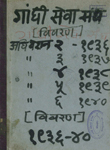 गांधी सेवा संघ
[विवरण]
२ - १९३६
" ३ १९३७
" ४ १९३८
" ५ १९३९
" ६ १९४०
[विवरण]
१९३६-४०